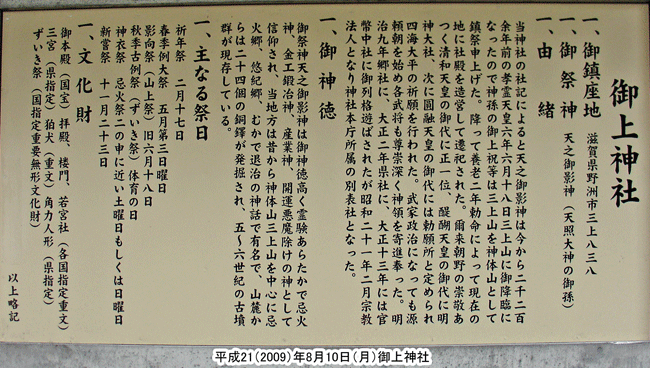 御上神社
一、御鎮座地　滋賀県野洲市三上八三八
一、御祭神　天之御影神（天照大神の御孫）
一、由緒
当神社の社記によると天之御影神は今から二千二百
余年前の孝霊天皇六年六月十八日三上山に御降臨に
なったので神孫の御上祝等は三上山を神体山として
鎮祭申上げた。降って養老二年勅命によって現在の
地に社殿を造営して遷祀された。爾来朝野の崇敬あ
つく清和天皇の御代に正一位、醍醐天皇の御代に明
神大社、次に圓融天皇の御代には勅願所と定められ
四海太平の祈願を行われた。武家政治になっても源
頼朝を始め各武将も尊崇深く神領を寄進奉った。明
治九年郷社に、大正二年県社に、大正十三年には官
幣中社に御列格遊ばされたが昭和二十一年二月宗教
法人となり神社本庁所属の別表社となった。
一、御神徳
御祭神天之御影神は御神徳高く霊験あらたかで忌火
神、金工鍛冶神、産業神、開運悪魔除けの神として
信仰され、当地方は昔から神体山三上山を中心に忌
火郷、悠紀郷、むかで退治の神話で有名で、山麓か
らは二十四個の銅鐸が発掘され、五〜六世紀の古墳
群が現存している。
一、主なる祭日
祈年祭　二月十七日
春季例大祭　五月第三日曜日
影向祭（山上祭）旧六月十八日
秋季古例祭（ずいき祭）体育の日
神衣祭　忌火祭二の申に近い土曜日もしくは日曜日
新嘗祭　十一月二十三日
一、文化財
御本殿（国宝）拝殿、楼門、若宮社（各国指定重文）
三宮（県指定）狛犬（重文）角力人形（県指定）
ずいき祭（国指定重要無形文化財）
以上略記
平成21(2009)年8月10日(月)御上神社